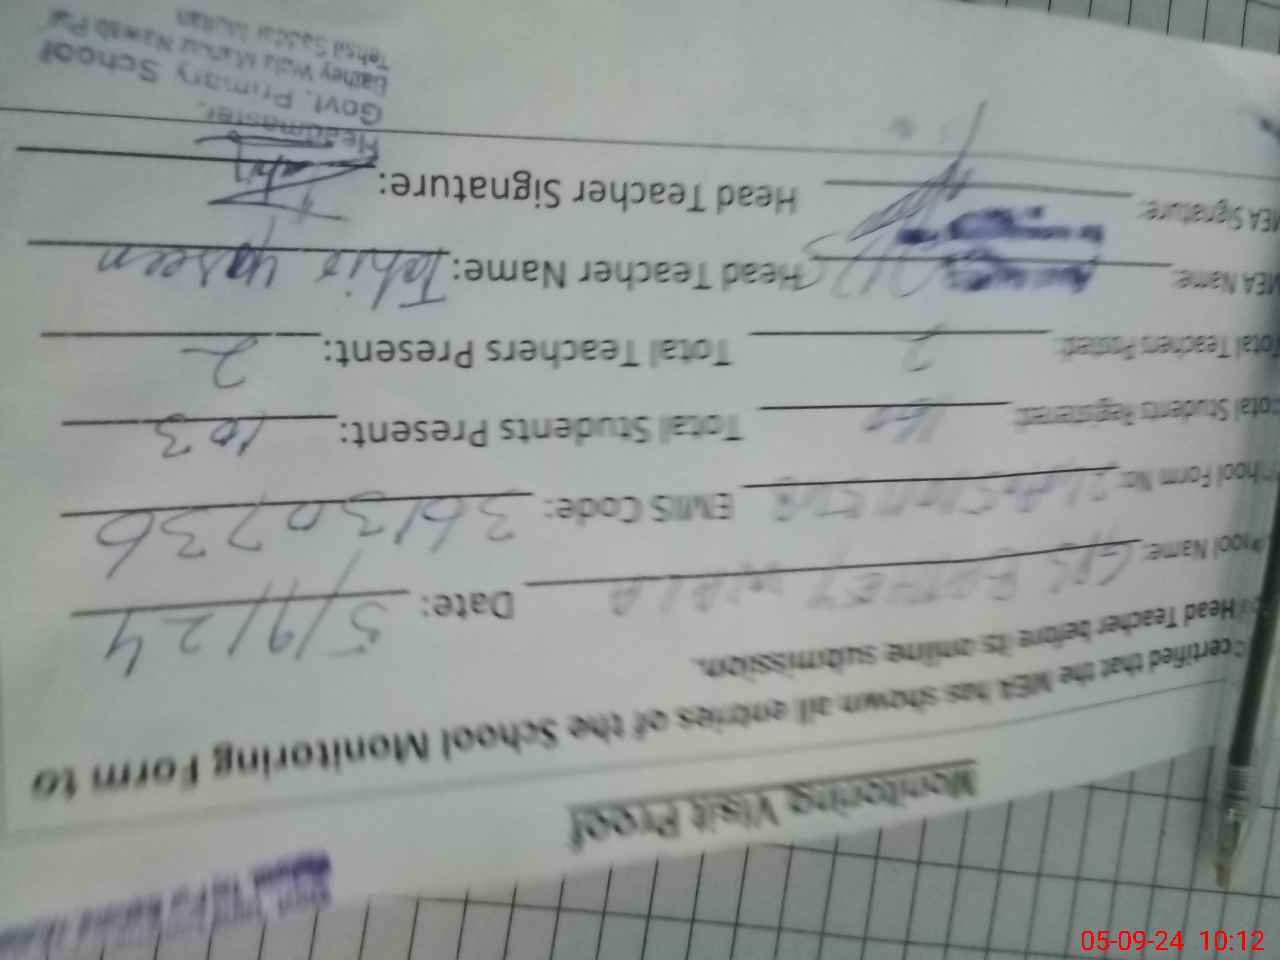 Monitoring Visit Proof
certified that the MEA has shown all entries of the School Monitoring Form to
Head Teacher before its online submission.
School Name: GPS BATHEY WALA Date: 5/9/24
School Form No: EMIS Code: 36130736
Total Students Registered: Total Students Present: 103
Total Teachers Posted: 2 Total Teachers Present: 2
MEA Name: Head Teacher Name: Tahir Yaseen
MEA Signature: Head Teacher Signature:
Headmaster
Govt. Primary School
Bathey Wala Markaz Nawab Pur
Tehsil Saddar Multan
05-09-24 10:12